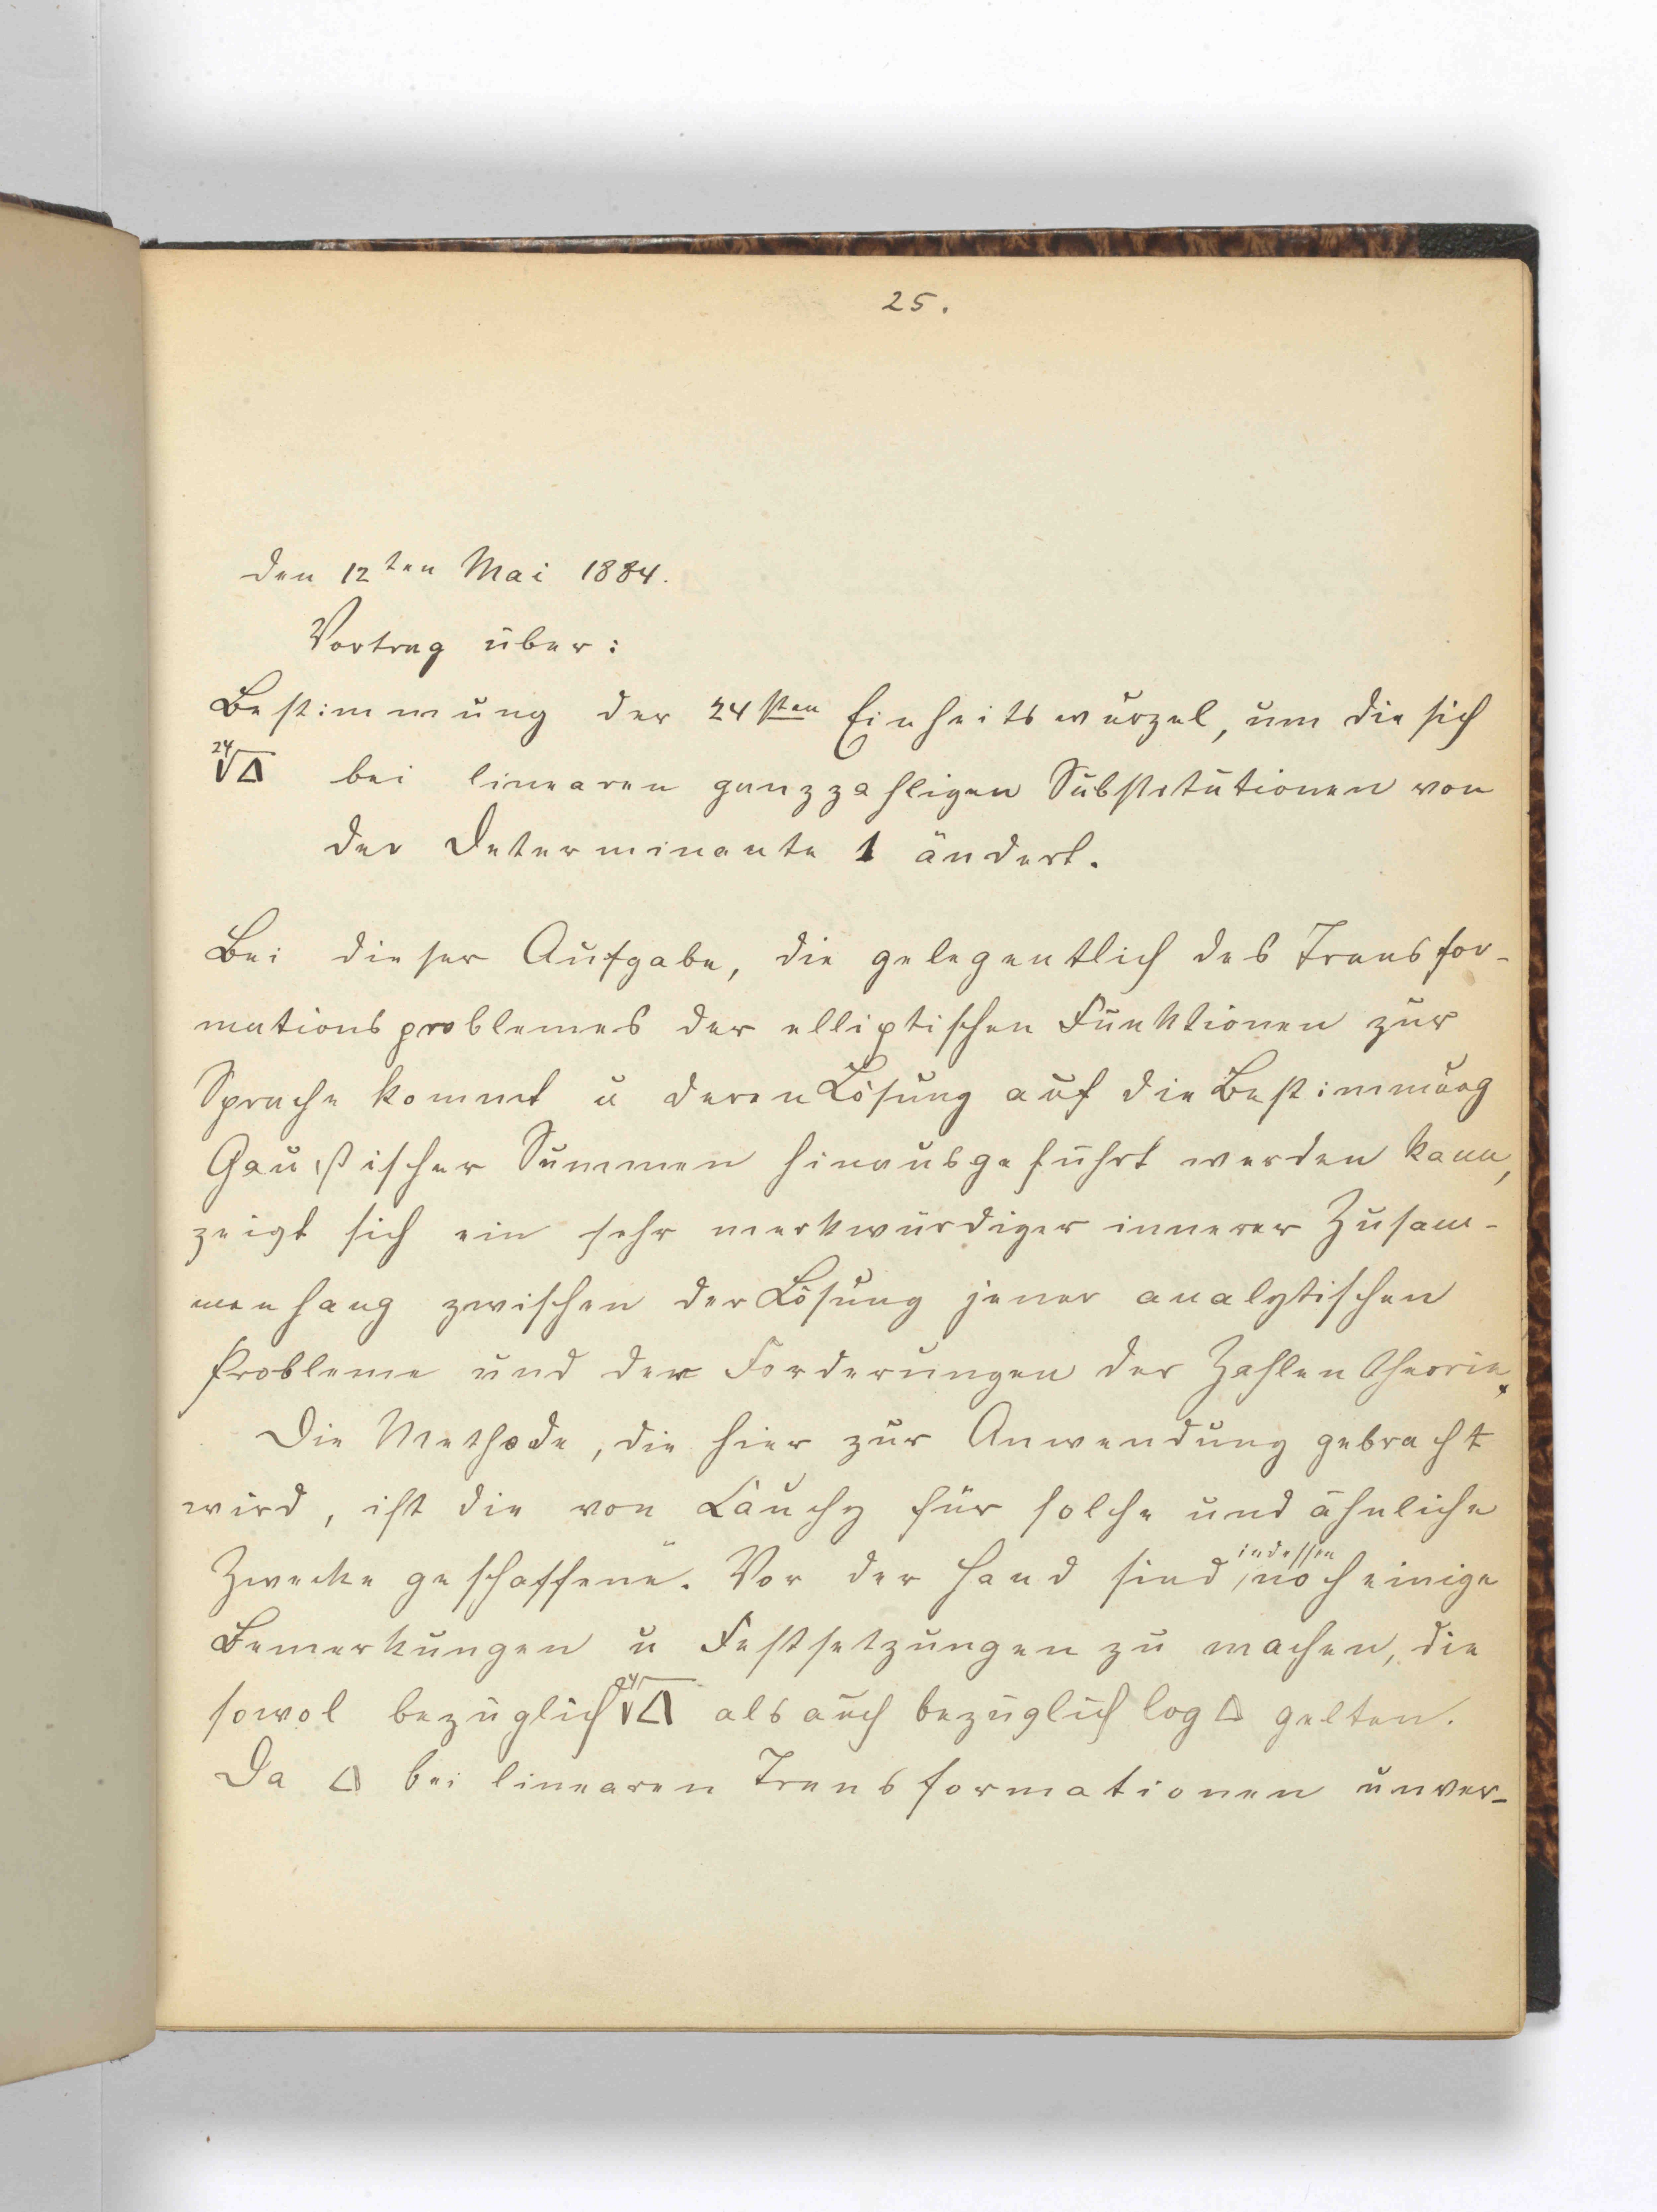 25.
den 12ten Mai 1884.
Vortrag über:
Bestimmung der 24sten Einheitswurzel, um die sich
²⁴√Δ bei linearen ganzzahligen Substitutionen von
der Determinante 1 ändert.
Bei dieser Aufgabe, die gelegentlich des Transfor-
mationsproblemes der elliptischen Funktionen zur
Sprache kommt u deren Lösung auf die Bestimmung
Gaußischer Summen hinausgeführt werden kann,
zeigt sich ein sehr merkwürdiger innerer Zusam-
menhang zwischen der Lösung jener analytischen
Probleme und der Forderungen der Zahlentheorie.
Die Methode, die hier zur Anwendung gebracht
wird, ist die von Cauchy für solche und ähnliche
Zwecke geschaffene. Vor der Hand sind indessen noch einige
Bemerkungen u Festsetzungen zu machen, die
sowol bezüglich ²⁴√Δ als auch bezüglich log Δ gelten.
Da Δ bei linearen Transformationen unver-